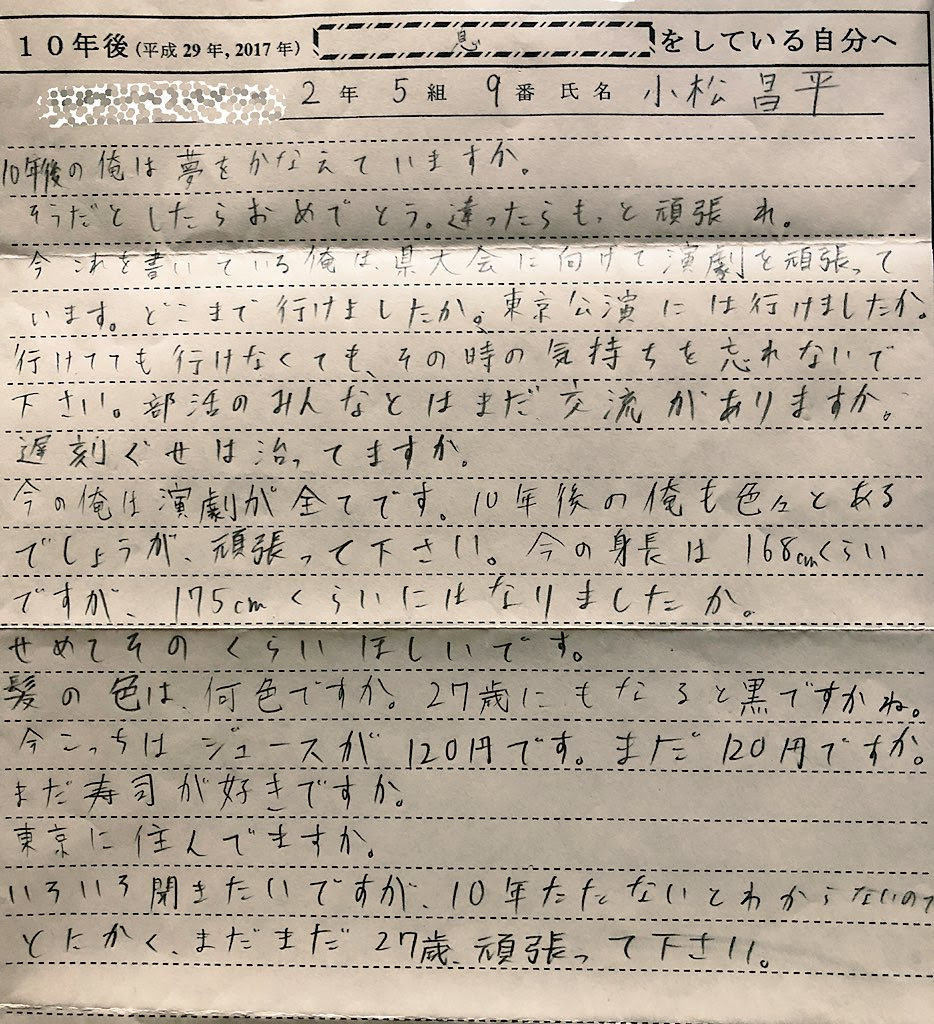 10年後(平成29年,2017年) 息 をしている自分へ
2年 5組 9番 氏名 小松 昌平
10年後の俺は夢をかなえていますか。
そうだとしたらおめでとう。違ったらもっと頑張れ。
今これを書いている俺は、県大会に向けて演劇を頑張って
います。どこまで行けましたか。東京公演には行けましたか。
行けてても行けなくても、その時の気持ちを忘れないで
下さい。部活のみんなとはまだ交流がありますか。
遅刻ぐせは治ってますか。
今の俺は演劇が全てです。10年後の俺も色々とある
でしょうが、頑張って下さい。今の身長は168cmくらい
ですが、175cmくらいにはなりましたか。
せめてそのくらいほしいです。
髪の色は何色ですか。27歳にもなると黒ですかね。
今こっちはジュースが120円です。まだ120円ですか。
まだ寿司が好きですか。
東京に住んでますか。
いろいろ聞きたいですが、10年たたないとわからないので
とにかく、まだまだ27歳、頑張って下さい。